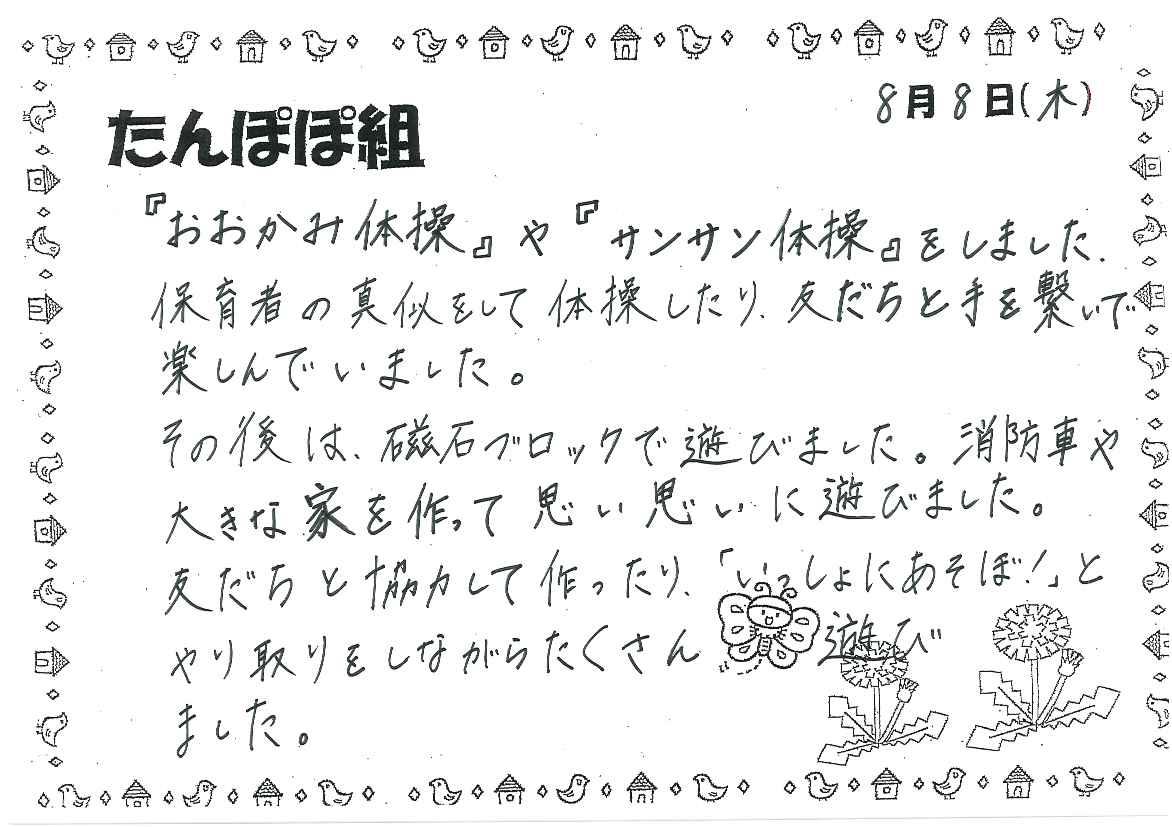 8月8日(木)
たんぽぽ組
『おおかみ体操』や『サンサン体操』をしました.
保育者の真似をして体操したり、友だちと手を繋いで
楽しんでいました。
その後は、磁石ブロックで遊びました。消防車や
大きな家を作って思い思いに遊びました。
友だちと協力して作ったり、「いっしょにあそぼ!」と
やり取りをしながらたくさん遊び
ました。